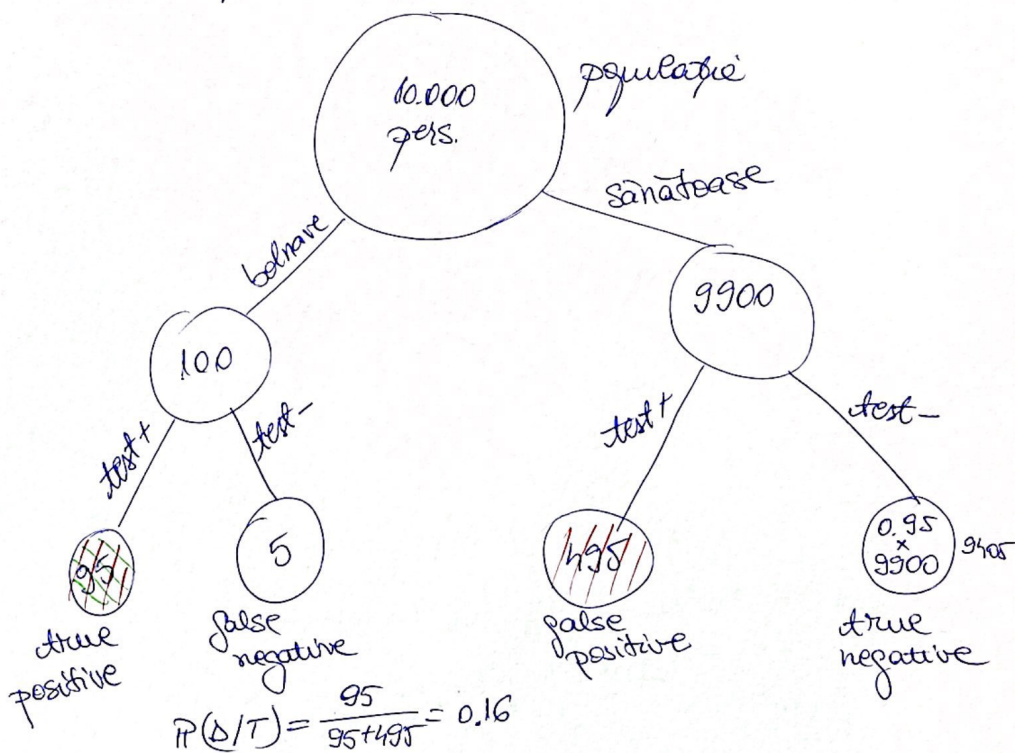 10.000
pers.
populație
bolnave
sănătoase
100
9900
test+
test-
test+
test-
95
5
495
0.95
x
9900
9405
true
positive
false
negative
false
positive
true
negative
P(D/T) = 95 / 95+495 = 0.16